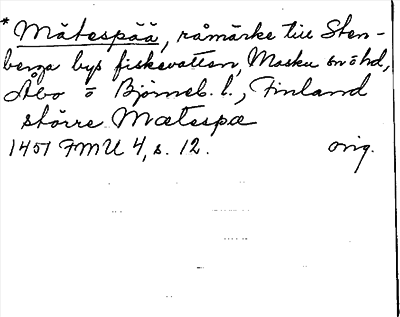 * Mätespää, råmärke till Sten-
berga bys fiskevatten, Masku
Åbo o Björneb. l., Finland
större Mætespæ
1451 FMU 4, s. 12. orig.